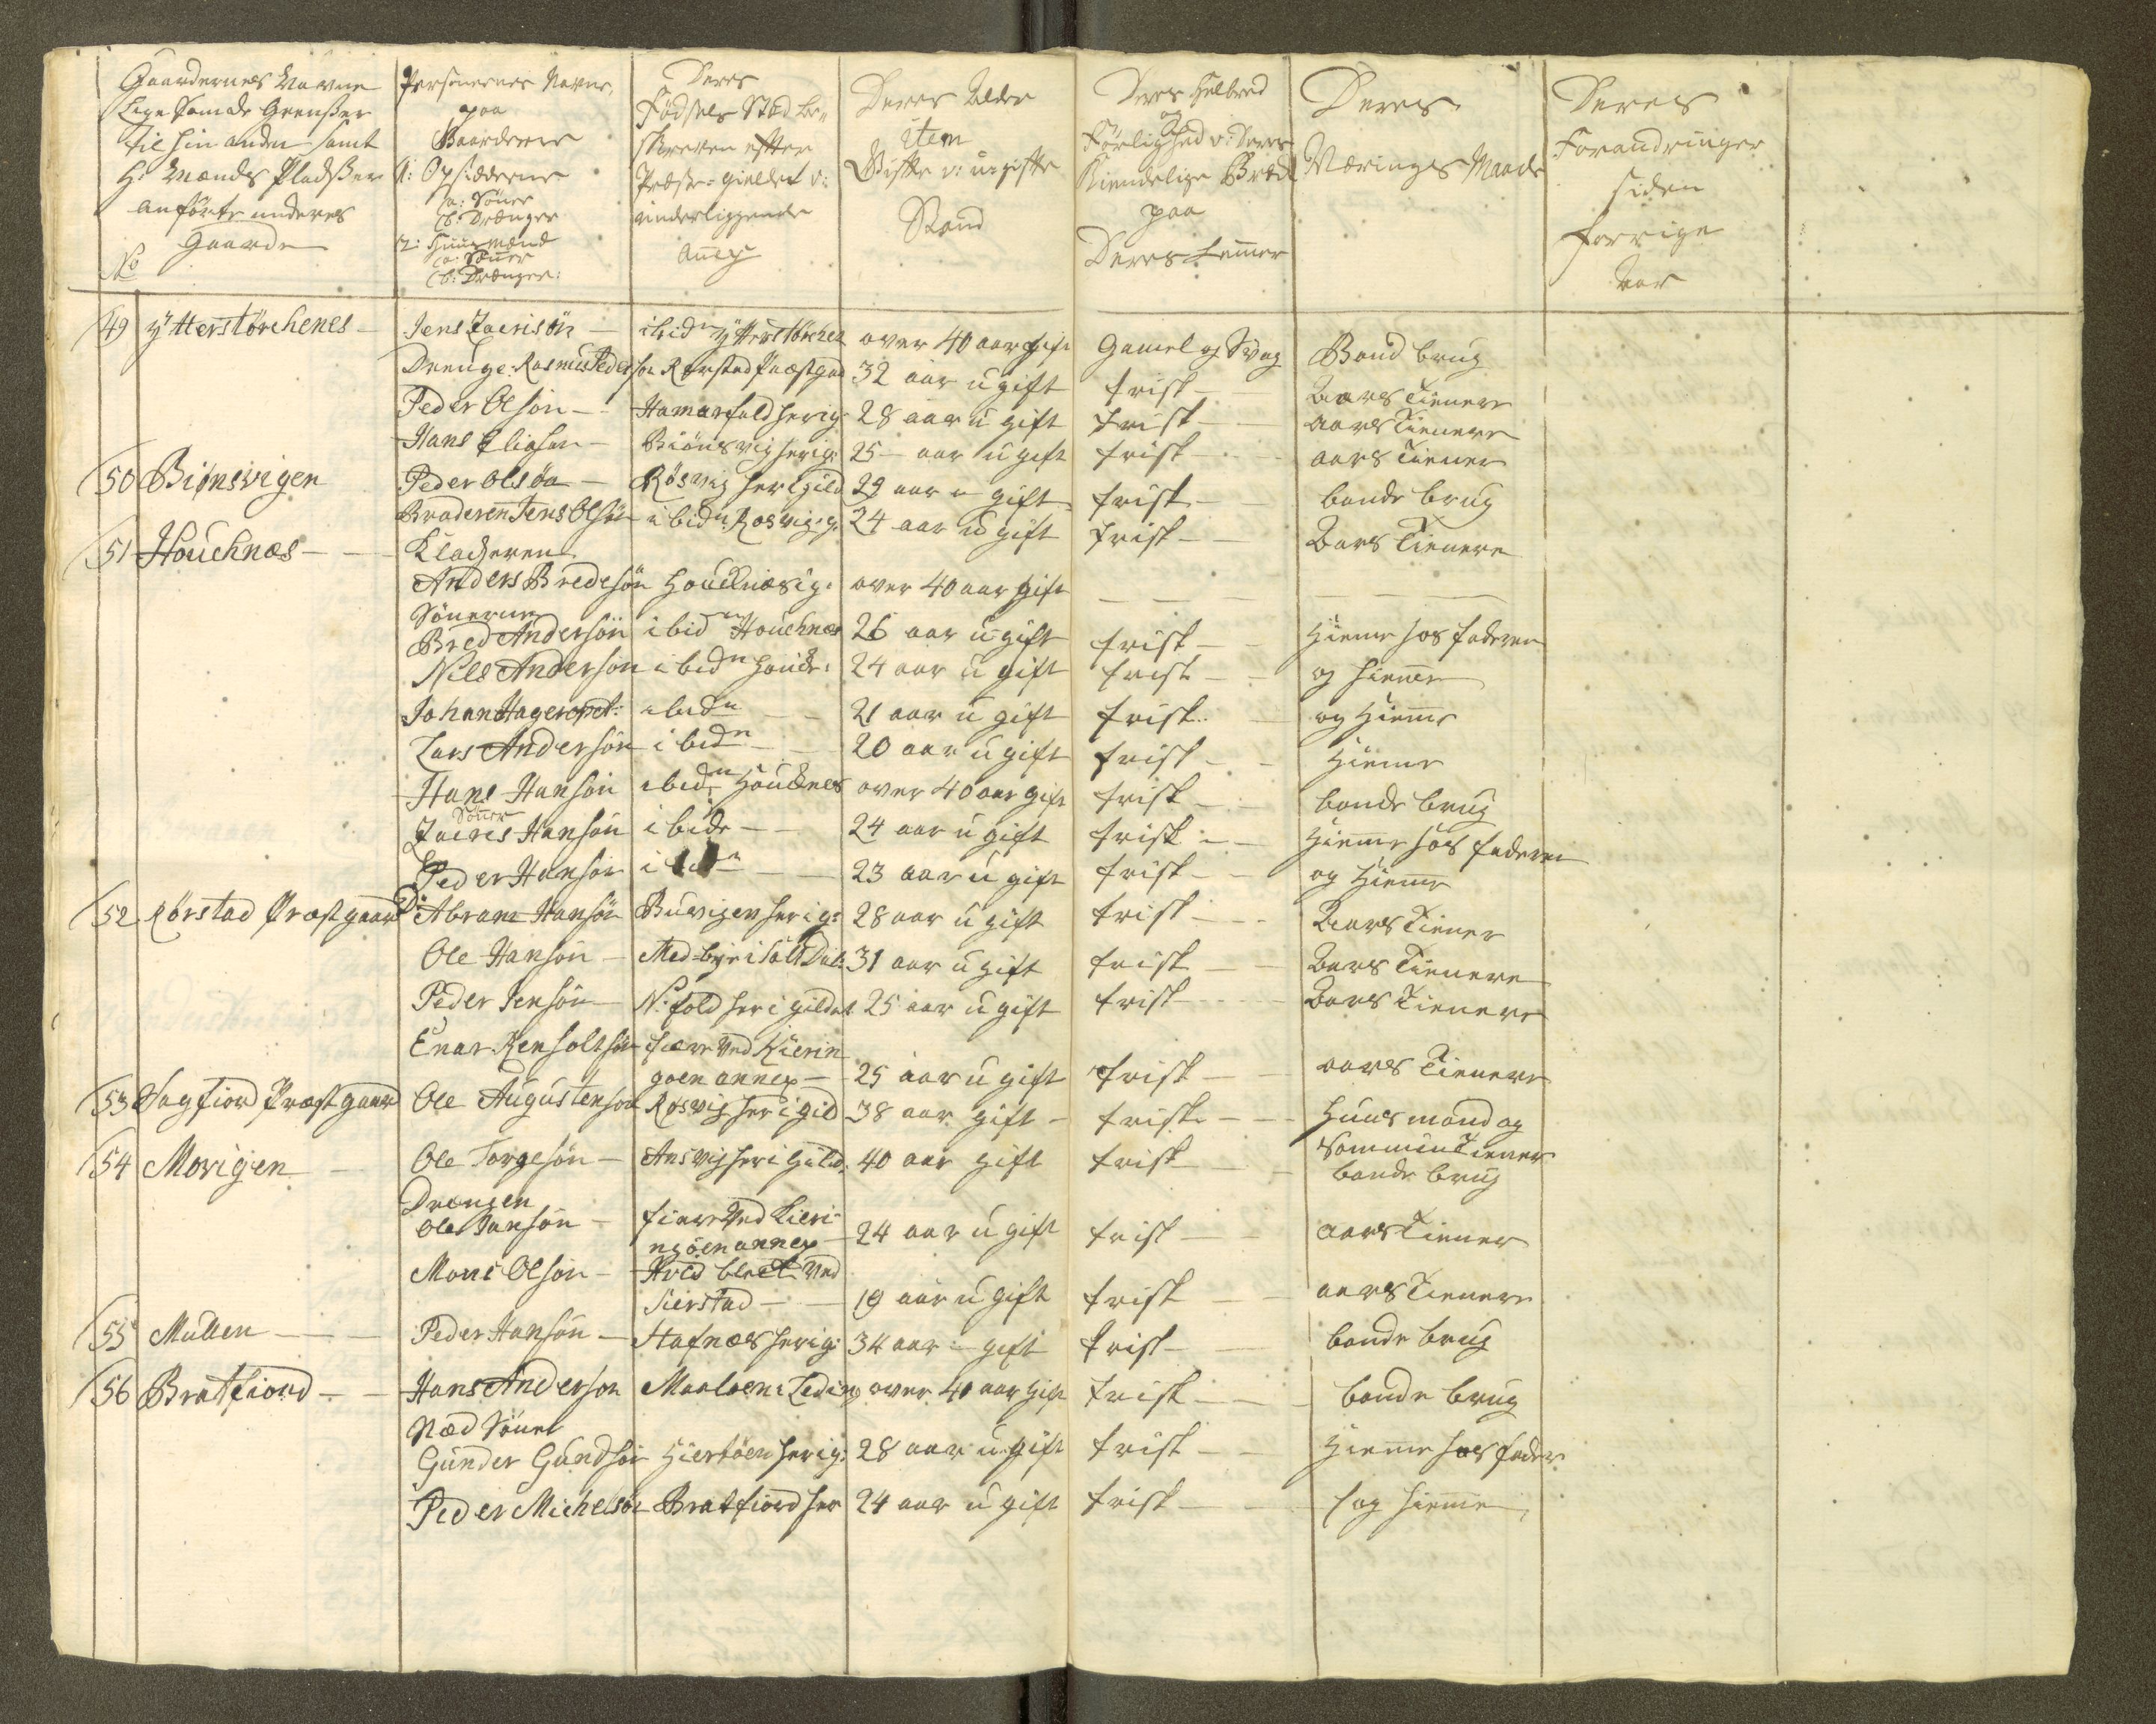 Gaardernes Navne
Lige som de Grendser
til hin anden samt
H: Mænds Pladser
anförte underes
Gaarde
No
Personernes Navne,
paa
Gaardene
1: Opsidderne
a: Söner
b: Drænger
2: Huusmænd
a: Söner
b: Drænger:
Deres
Födsels Stæd be„
skreven efter
Præste-gieldet v:
underliggende
Anex
Deres Alder
item
Gifte v: u-gifte
Stand
Deres Helbred
og
Förlighed v: deres
Kiendelige Bræk
paa
Deres Lemmer
Deres
Nærings Maade
Deres
Forandringer
siden
forrige
Aar
49 ÿtterstörchenes — Jens Zacrisön — ibidn ÿtterstörchen over 40 aar gift Gamel og Svag Bond brug
Drenge: Rasmus Peders sn Rörstad Præstgrd 32 aar ugift frisk — Aars Tienere
Peder Olsön — Hamarfald her ig: 28 aar u gift frisk — aars Tienere
Hans Eliasen — Biönsvig her ig: 25 — aar u gift frisk — aars Tiener
50 Biönsvigen Peder Olsön — Rösvig her i gild 29 aar u gift frisk — bonde brug
Broderen Jens Olsön ibidn Rosvig: g: 24 aar u gift frisk — Aars Tienere
51 Houchnæs — Klackeren
Anders Bredesön Houcknæs ig: over 40 aar gift — — —
Sönerne
Bred Andersön ibidn Houchnæs 26 aar u-gift frisk — Hieme hos faderen
Nils Anderson ibidn Houck: 24 aar u gift frisk — og hieme
Johan Hageropet: ibidn — 21 aar u gift frisk — og Hieme
Lars Andersön ibidn — 20 aar u gift frisk — Hieme
Hans Hansön ibidn Houcknes over 40 aar gift frisk — bonde brug
Söner
Zacris Hansön ibidn — 24 aar u gift frisk — Hieme hos faderen
Peder Hansön ibidn — 23 aar u gift frisk — og Hieme
52 Rörstad Præstgaard D: Abram Hansön Buvigen her ig: 28 aar u gift frisk — Aars Tiener
Ole Hansön — Med-bÿe i Salt Dal: 31 aar u gift frisk — Aars Tienere
Peder Jensön — N: fold her i gildet 25 aar u gift frisk — Aars Tienere
Enar Renholtsön fiære ved Kierin
goen annex — 25 aar u gift frisk — aars Tienere
53 Sagfiord Præstgaard Ole Augustensön Rosvig her i gild 38 aar gift — frisk — Huus mand og
Sommer Tiener
54 Morigen — Ole Torgesön — Ansvig her i Gield: 40 aar gift frisk — bonde brug
Drængen
Ole Jansön — fiære ved Kieri-
ngöen annex — 24 aar u gift frisk — aars Tiener
Mons Olsön — Hvid blect ved
Sierstad — 19 aar u gift frisk — aars Tienere
55 Mullen — Peder Hansön — Stafnæs her ig: 34 aar — gift frisk — bonde brug
56 Bratfiord — Hans Anderson Maaloen i Leding over 40 aar gift frisk — bonde brug
Stæd Sönet
Gunder Gundsön Hiertöen her ig: 28 aar u-gift frisk — Hieme hos fader
Peder Michelsön Bratfiord her 24 aar u gift frisk — og hieme